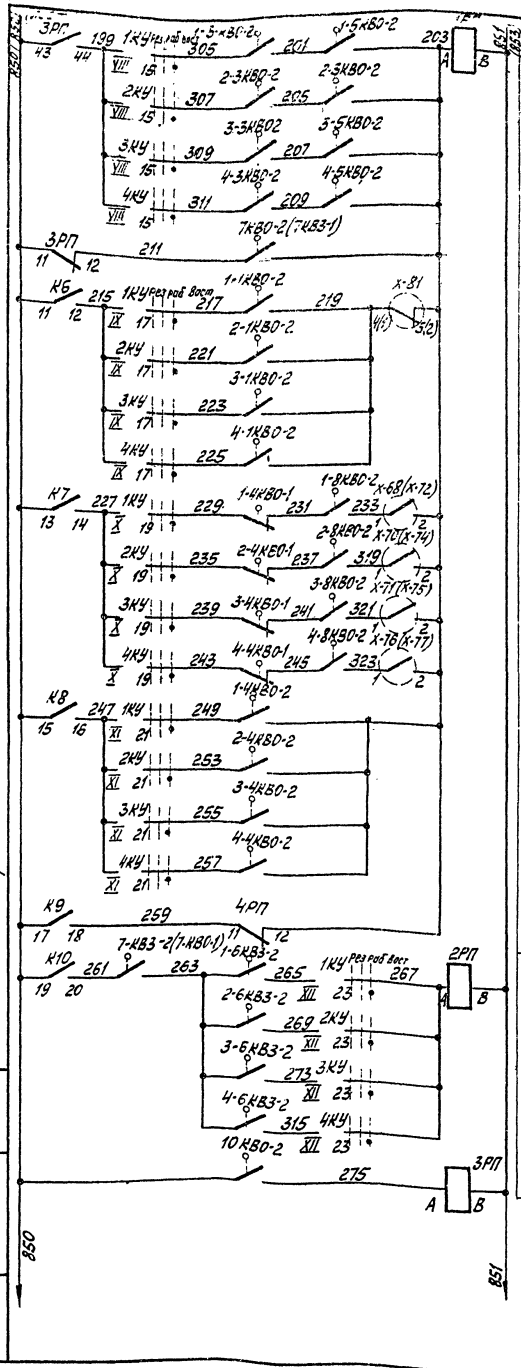 3РП 199 1КУ рез раб вост 305 1-5-КВО-2 201 1-5КВО-2 203
43 44 VIII 15 А В
850 851 (853)
2КУ 307 2-3КВО-2 205 2-3КВО-2
VIII 15
3КУ 309 3-3КВО2 207 3-5КВО-2
VIII 15
4КУ 311 4-3КВО-2 209 4-5КВО-2
VIII 15
3РП 211 7КВО-2(7КВЗ-1)
11 12
К6 215 1КУ рез раб вост 217 1-1КВО-2 219 Х-81
11 12 IX 17
2КУ 221 2-1КВО-2
IX 17
3КУ 223 3-1КВО-2
IX 17
4КУ 225 4-1КВО-2
IX 17
К7 227 1КУ 229 1-4КВО-1 231 1-8КВО-2 233 Х-68(Х-72)
13 14 X 19 1 2
2КУ 235 2-4КВО-1 237 2-8КВО-2 319 Х-70(Х-74)
X 19 2
3КУ 239 3-4КВО-1 241 3-8КВО-2 321 Х-71(Х-75)
X 19 1 2
4КУ 243 4-4КВО-1 245 4-8КВО-2 323 Х-76(Х-77)
X 19 1 2
К8 247 1КУ 249 1-4КВО-2
15 16 XI 21
2КУ 253 2-4КВО-2
XI 21
3КУ 255 3-4КВО-2
XI 21
4КУ 257 4-4КВО-2
XI 21
К9 259 4РП
17 18 11 12
К10 261 7-КВЗ-2(7-КВО-1) 263 1-6КВЗ-2 265 1КУ рез раб вост 267 2РП
19 20 XII 23 А В
2-6КВЗ-2 269 2КУ
XII 23
3-6КВЗ-2 273 3КУ
XII 23
4-6КВЗ-2 315 4КУ
XII 23
10КВО-2 275 3РП
А В
850 851